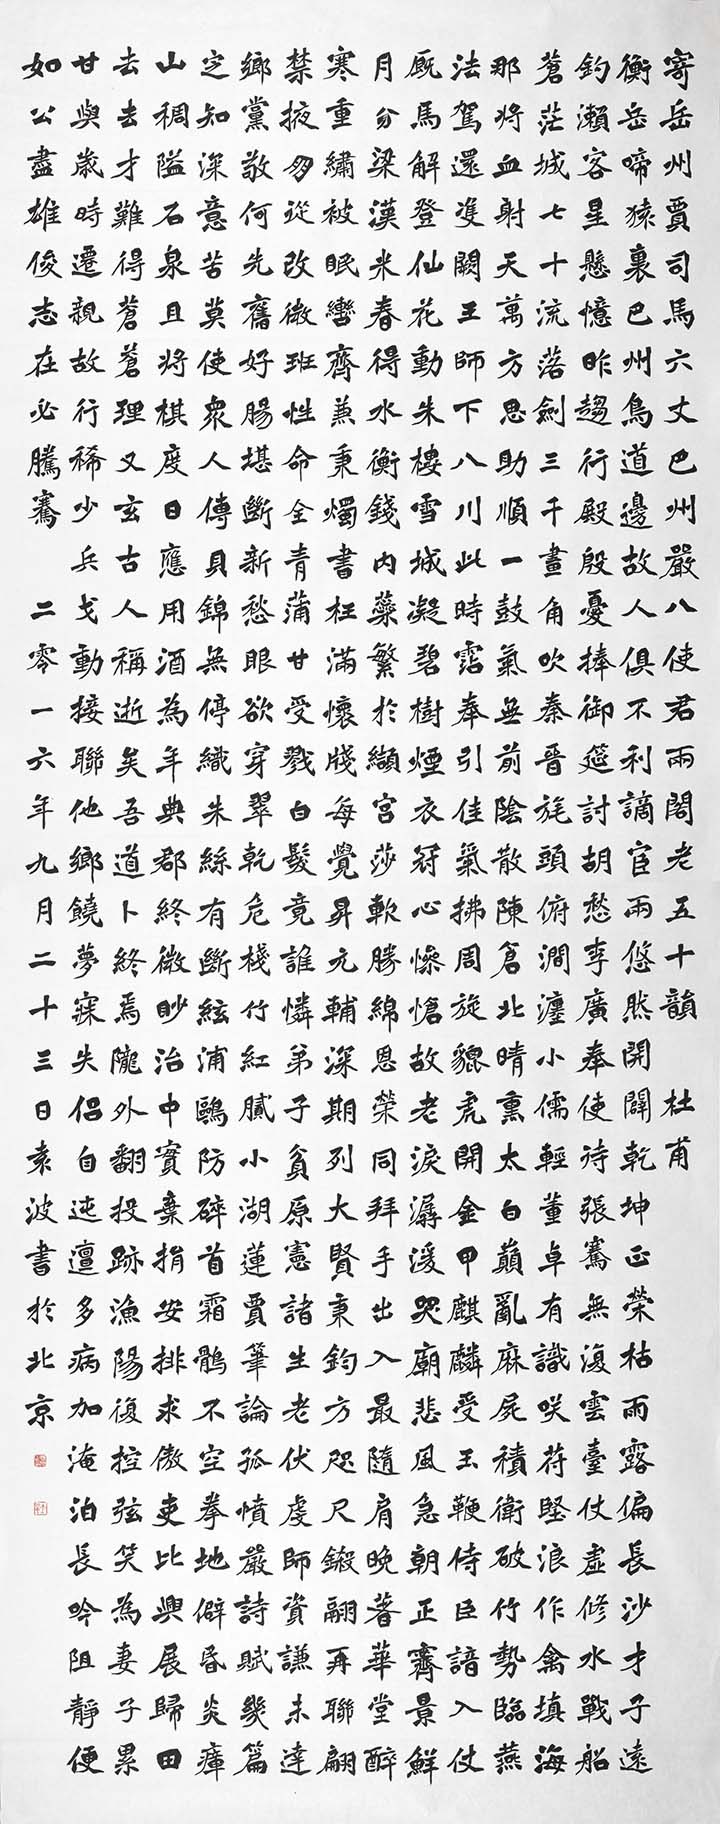 寄岳州賈司馬六丈巴州嚴八使君兩閣老五十韻 杜甫
衡岳啼猿裏巴州鳥道邊故人俱不利謫宦兩悠然開闢乾坤正榮枯雨露偏長沙才子遠
釣瀨客星懸憶昨趨行殿殷憂捧御筵討胡愁李廣奉使待張騫無復雲臺仗虛修水戰船
蒼茫城七十流落劍三千畫角吹秦晉旄頭俯澗瀍小儒輕董卓有識咲苻堅浪作禽填海
那將血射天萬方思助順一鼓氣無前陰散陳倉北晴熏太白巔亂麻屍積衛破竹勢臨燕
法駕還雙闕王師下八川此時霑奉引佳氣拂周旋貔虎開金甲麒麟受玉鞭侍臣諳入仗
廄馬解登仙花動朱樓雪城凝碧樹煙衣冠心慘愴故老淚潺湲哭廟悲風急朝正霽景鮮
月分梁漢米春得水衡錢內蘂繁於纈宮莎軟勝綿恩榮同拜手出入最隨肩晚著華堂醉
寒重繡被眠轡齊兼秉燭書枉滿懷牋每覺昇元輔深期列大賢秉鈞方咫尺鎩翮再聯翩
禁掖朋從改微班性命全青蒲甘受戮白髮竟誰憐弟子貧原憲諸生老伏虔師資謙未達
鄉黨敬何先舊好腸堪斷新愁眼欲穿翠乾危棧竹紅膩小湖蓮賈筆論孤憤嚴詩賦幾篇
定知深意苦莫使衆人傳貝錦無停織朱絲有斷絃浦鷗防碎首霜鶻不空拳地僻昏炎瘴
山稠隘石泉且將棋度日應用酒為年典郡終微眇治中實棄捐安排求傲吏比興展歸田
去去才難得蒼蒼理又玄古人稱逝矣吾道卜終焉隴外翻投跡漁陽復控弦笑為妻子累
甘與歲時遷親故行稀少兵戈動接聯他鄉饒夢寐失侶自迍邅多病加淹泊長吟阻靜便
如公盡雄俊志在必騰騫 二零一六年九月二十三日袁波書於北京